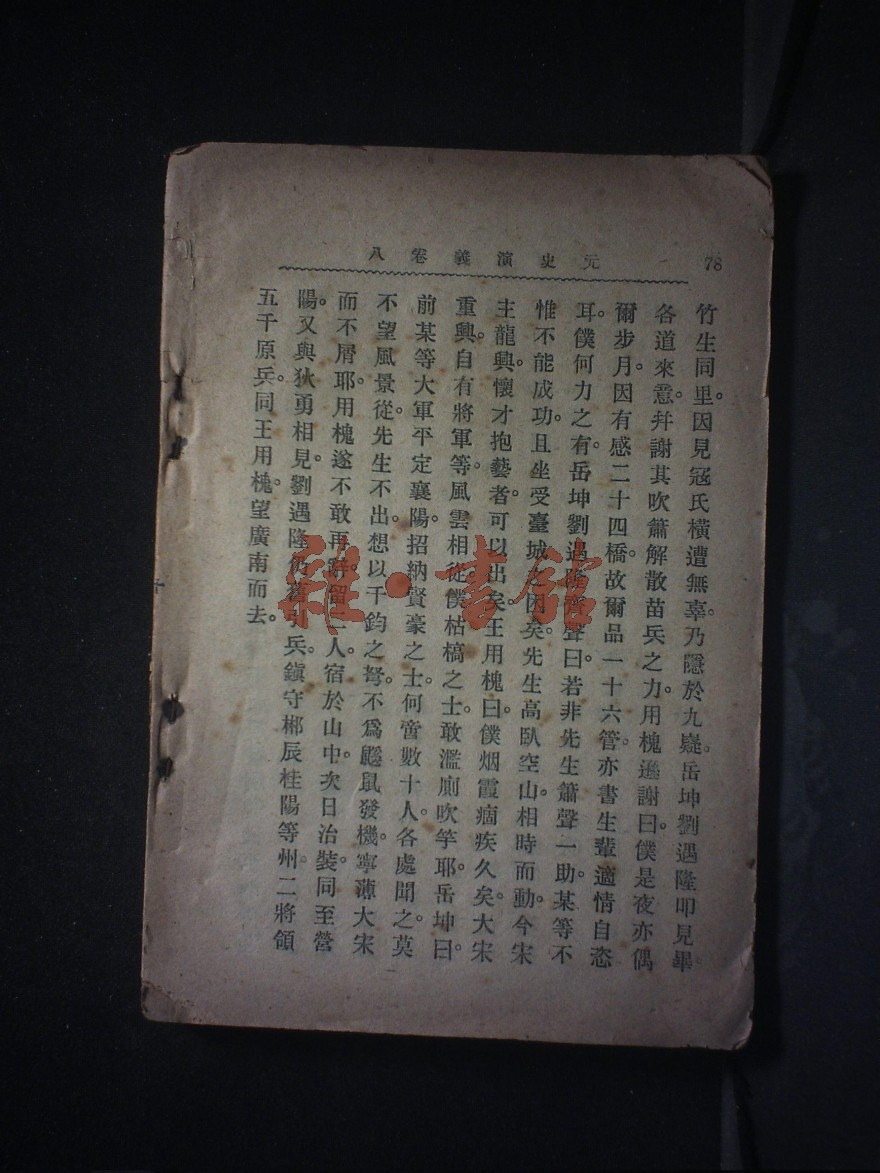 78
元史演義卷八
竹生同里。因見寇氏橫遭無辜。乃隱於九嶷。岳坤劉遇隆叩見畢。
各道來意。幷謝其吹簫解散苗兵之力。用槐遜謝曰。僕是夜亦偶
爾步月。因有感二十四橋。故爾品一十六管。亦書生輩適情自恣
耳。僕何力之有。岳坤劉遇隆齊聲曰。若非先生簫聲一助。某等不
惟不能成功。且坐受臺城之困矣。先生高臥空山。相時而動。今宋
主龍興。懷才抱藝者。可以出矣。王用槐曰。僕烟霞痼疾久矣。大宋
重興。自有將軍等。風雲相從。僕枯槁之士。敢濫廁吹竽耶。岳坤曰。
前某等大軍平定襄陽。招納賢豪之士。何啻數十人。各處聞之。莫
不望風景從。先生不出。想以千鈞之弩。不爲鼷鼠發機。寧薄大宋
而不屑耶。用槐遂不敢再辭。留二人宿於山中。次日治裝。同至營
陽。又與狄勇相見。劉遇隆仍舊引兵。鎭守郴辰桂陽等州。二將領
五千原兵。同王用槐。望廣南而去。
雜·書館